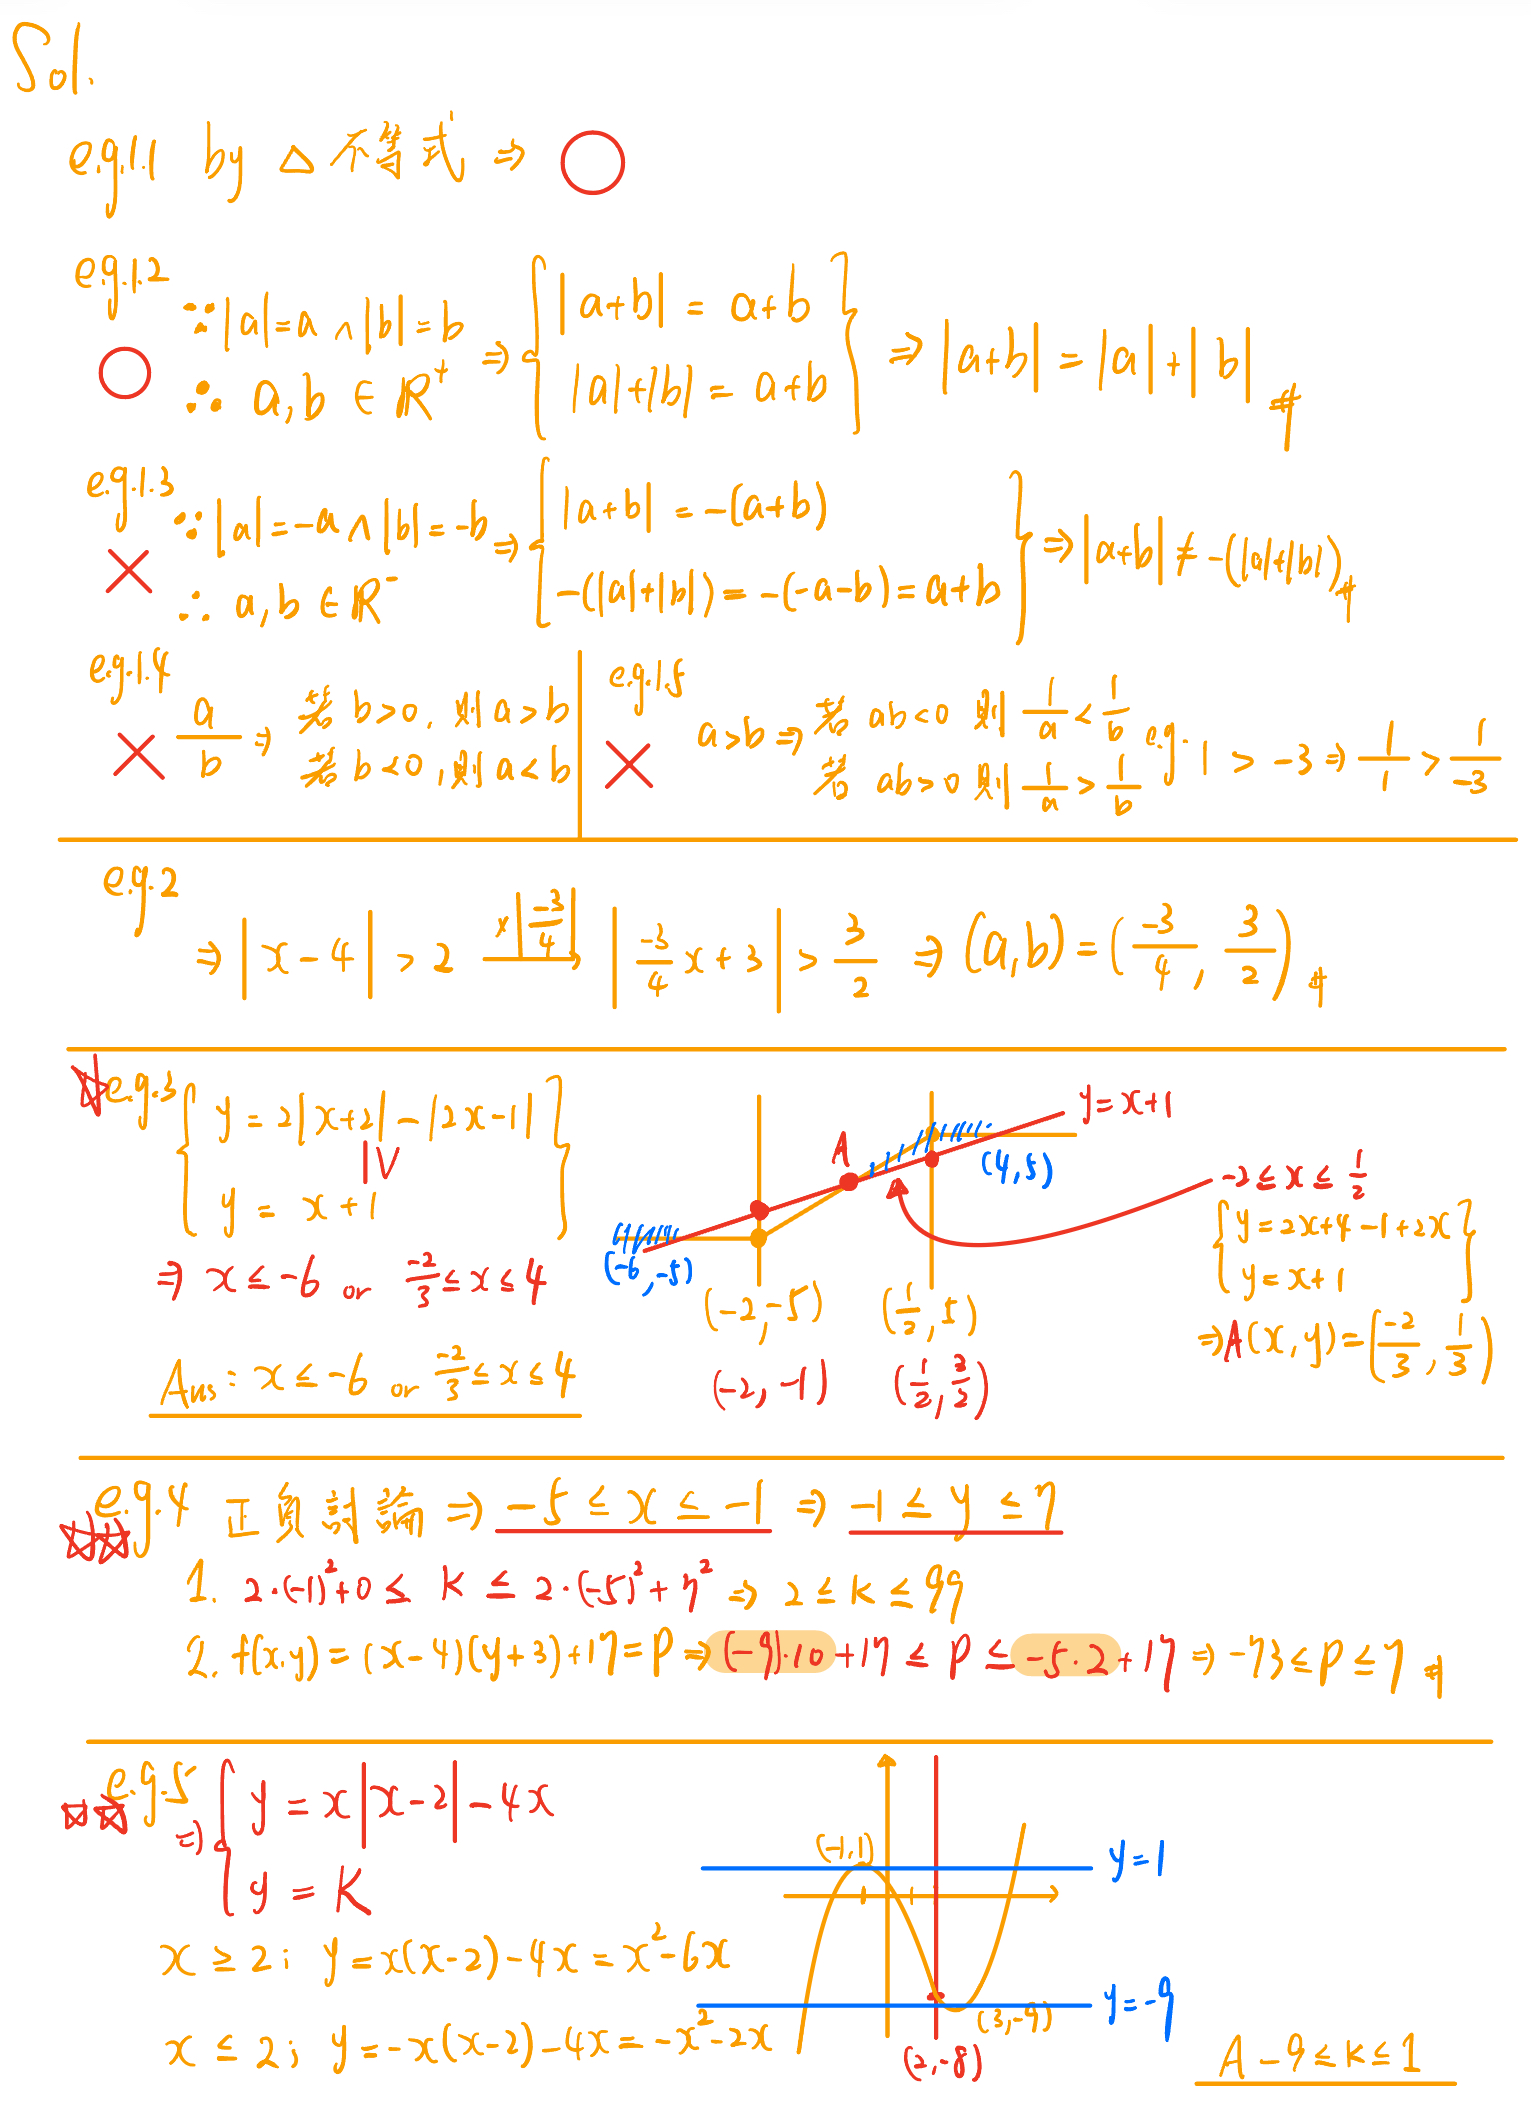 Sol.
e.g.1.1 by △不等式 ⇒ ○
e.g.1.2
○ ∵|a|=a ∧ |b|=b
∴ a,b ∈ R⁺
⇒ { |a+b| = a+b
|a|+|b| = a+b } ⇒ |a+b| = |a|+|b| #
e.g.1.3
× ∵|a|=-a ∧ |b|=-b
∴ a,b ∈ R⁻
⇒ { |a+b| = -(a+b)
-(|a|+|b|) = -(-a-b) = a+b } ⇒ |a+b| ≠ -(|a|+|b|) #
e.g.1.4
× a/b ⇒ 若 b>0, 則 a>b
若 b<0, 則 a<b
e.g.1.5
× a>b ⇒ 若 ab<0 則 1/a < 1/b
若 ab>0 則 1/a > 1/b
e.g. 1 > -3 ⇒ 1/1 > 1/-3
e.g.2
⇒ |x-4| > 2 ×|-3/4| → |-3/4 x+3| > 3/2 ⇒ (a,b) = (-3/4, 3/2) #
☆e.g.3
{ y = 2|x+2| - |2x-1|
|V
y = x+1 }
⇒ x ≤ -6 or -2/3 ≤ x ≤ 4
Ans: x ≤ -6 or -2/3 ≤ x ≤ 4
y=x+1
A
(4,5)
(-6,-5)
(-2,-5)
(1/2, 5)
(-2,-1)
(1/2, 3/2)
-2 ≤ x ≤ 1/2
{ y = 2x+4-1+2x
y = x+1 }
⇒ A(x,y) = (-2/3, 1/3)
☆☆e.g.4 正負討論 ⇒ -5 ≤ x ≤ -1 ⇒ -1 ≤ y ≤ 7
1. 2·(-1)²+0 ≤ K ≤ 2·(-5)²+7² ⇒ 2 ≤ K ≤ 99
2. f(x,y) = (x-4)(y+3)+17 = P ⇒ (-9)·10+17 ≤ P ≤ -5·2+17 ⇒ -73 ≤ P ≤ 7 #
☆☆e.g.5
⇒ { y = x|x-2|-4x
y = K
x ≥ 2; y = x(x-2)-4x = x²-6x
x ≤ 2; y = -x(x-2)-4x = -x²-2x
(-1,1)
y=1
y=-9
(3,-9)
(2,-8)
A -9 ≤ K ≤ 1